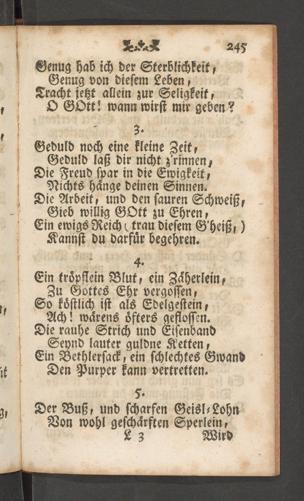 245
Genug hab ich der Sterblichkeit,
Genug von diesem Leben,
Tracht jetzt allein zur Seligkeit,
O GOtt! wann wirst mir geben?
3.
Geduld noch eine kleine Zeit,
Geduld laß dir nicht z'rinnen,
Die Freud spar in die Ewigkeit,
Nichts hänge deinen Sinnen.
Die Arbeit, und den sauren Schweiß,
Gieb willig GOtt zu Ehren,
Ein ewigs Reich (trau diesem G'heiß,)
Kannst du darfür begehren.
4.
Ein tröpflein Blut, ein Zäherlein,
Zu Gottes Ehr vergossen,
So köstlich ist als Edelgestein,
Ach! wärens öfters geflossen.
Die rauhe Strich und Eisenband
Seynd lauter guldne Ketten,
Ein Bethlersack, ein schlechtes Gwand
Den Purper kann vertretten.
5.
Der Buß, und scharfen Geisl-Lohn
Von wohl geschärften Sperlein,
L 3 Wird